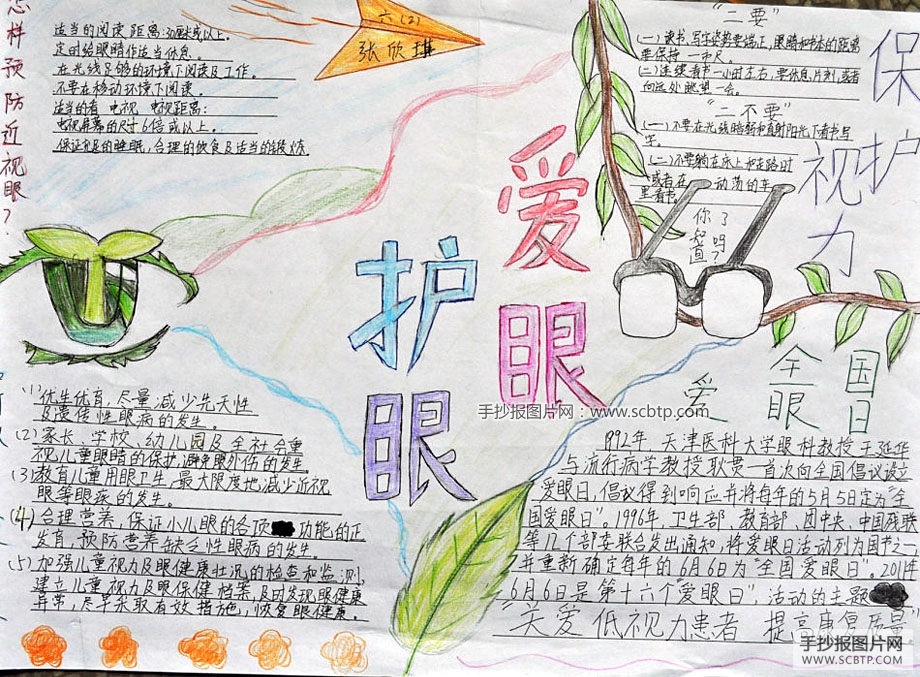 怎样预防近视眼？
适当的阅读距离：30厘米或以上。
定时给眼睛作适当休息。
在光线足够的环境下阅读及工作。
不要在移动环境下阅读。
适当的看电视，电视距离：
电视屏幕的尺寸6倍或以上。
保证充足的睡眠，合理的饮食及适当的锻炼。
六（2）
张欣琪
“二要”
（一）读书、写字姿势要端正，眼睛和书本的距离
要保持一市尺。
（二）连续看书一小时左右，要休息片刻，或者
向远处眺望一会。
“二不要”
（一）不要在光线暗弱和直射阳光下看书写
字。
（二）不要躺在床上和走路时
或者在动荡的车
里看书。
保护视力
你了
知吗
道？
爱眼
护眼
(1)优生优育，尽量减少先天性
及遗传性眼病的发生。
(2)家长、学校、幼儿园及全社会重
视儿童眼睛的保护，避免眼外伤的发生
(3)教育儿童用眼卫生，最大限度地减少近视
眼等眼疾的发生。
(4)合理营养，保证小儿眼的各项功能的正
发育，预防营养缺乏性眼病的发生。
(5)加强儿童视力及眼健康状况的检查和监测，
建立儿童视力及眼保健档案，及时发现眼健康
异常，尽早采取有效措施，恢复眼健康。
全国
爱眼日
1992年，天津医科大学眼科教授王延华
与流行病学教授耿贯一首次向全国倡议设立
爱眼日，倡议得到响应并将每年的5月5日定为“全
国爱眼日”。1996年，卫生部、教育部、团中央、中国残联
等12个部委联合发出通知，将爱眼日活动列为国节之一
并重新确定每年的6月6日为“全国爱眼日”。2011年
6月6日是第十六个“爱眼日”，活动的主题
“关爱低视力患者 提高康复质量”
手抄报图片网：www.scbtp.com
手抄报图片网
WWW.SCBTP.COM